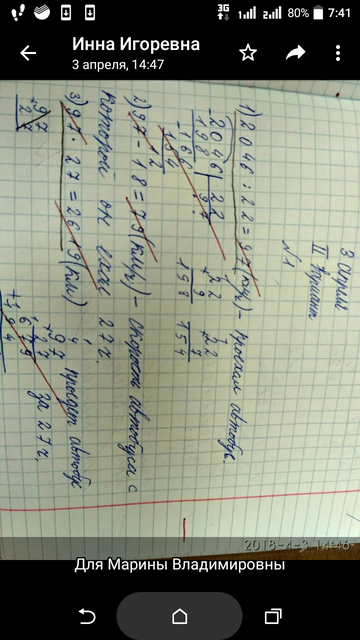 3G
80% 7:41
Инна Игоревна
3 апреля, 14:47
3 апреля
II вариант
№1
1) 2046 : 22 = 97 (км/ч) - проехал автобус.
-2046 | 22
198 | 97
-166
154
12
22
9
198
22
7
154
2) 97 - 18 = 79 (км/ч) - скорость автобуса с
которой он ехал 27 ч.
3) 97 · 27 = 2619 (км)
за 27 ч.
97
27
97
27
2018-4-3 14:46
Для Марины Владимировны